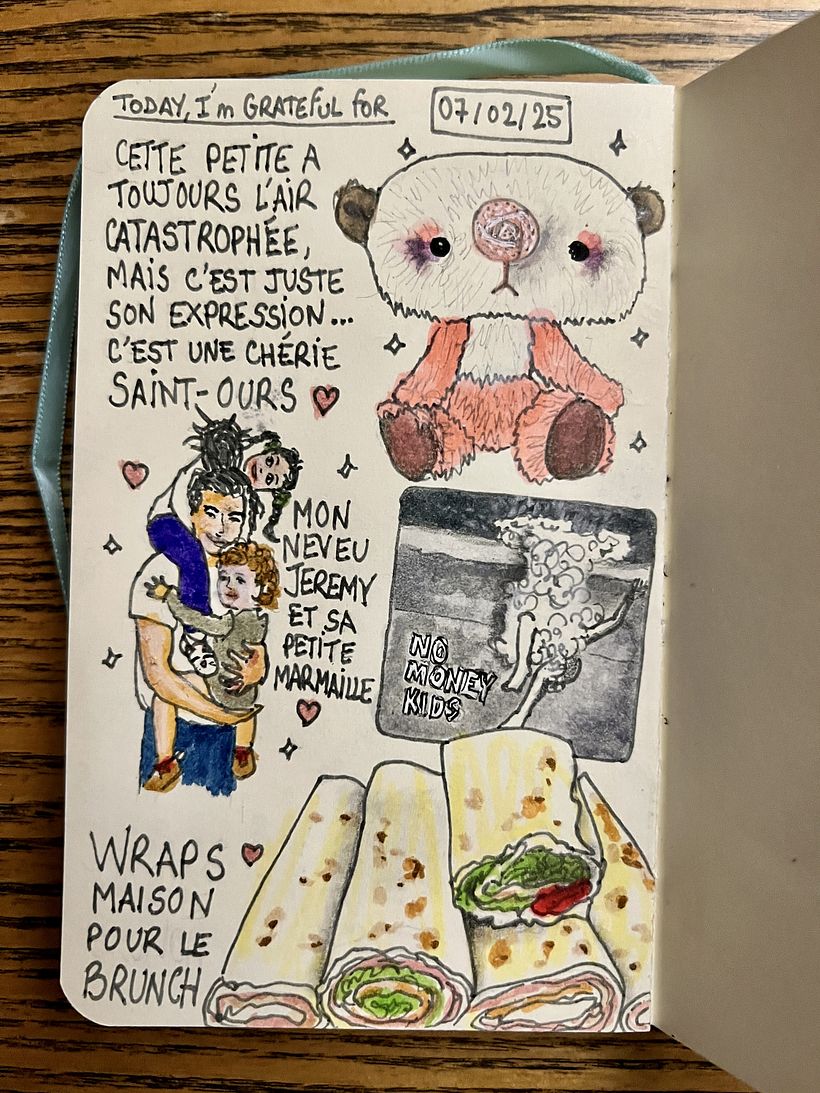 TODAY, I'm GRATEFUL FOR
07/02/25
CETTE PETITE A
TOUJOURS L'AIR
CATASTROPHÉE,
MAIS C'EST JUSTE
SON EXPRESSION...
C'EST UNE CHÉRIE
SAINT-OURS
MON
NEVEU
JEREMY
ET SA
PETITE
MARMAILLE
NO
MONEY
KIDS
WRAPS
MAISON
POUR LE
BRUNCH